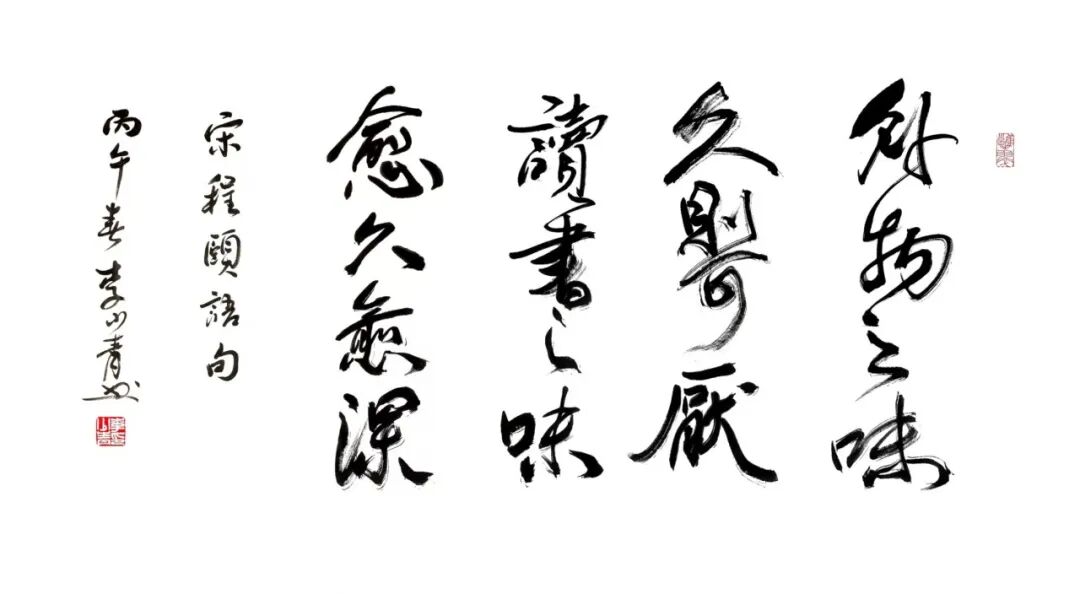 外物之味
久則可厭
讀書之味
愈久愈深
宋程頤語句
丙午春李青书